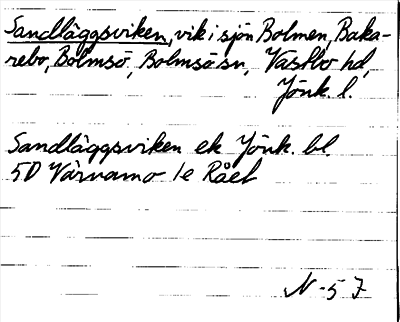 Sandläggsviken, vik i sjön Bolmen, Baka-
rebo, Bolmsö, Bolmsö sn, Västbo hd,
Jönk. l.
Sandläggsviken ek Jönk. bl.
5D Värnamo 1e Råel
N-57